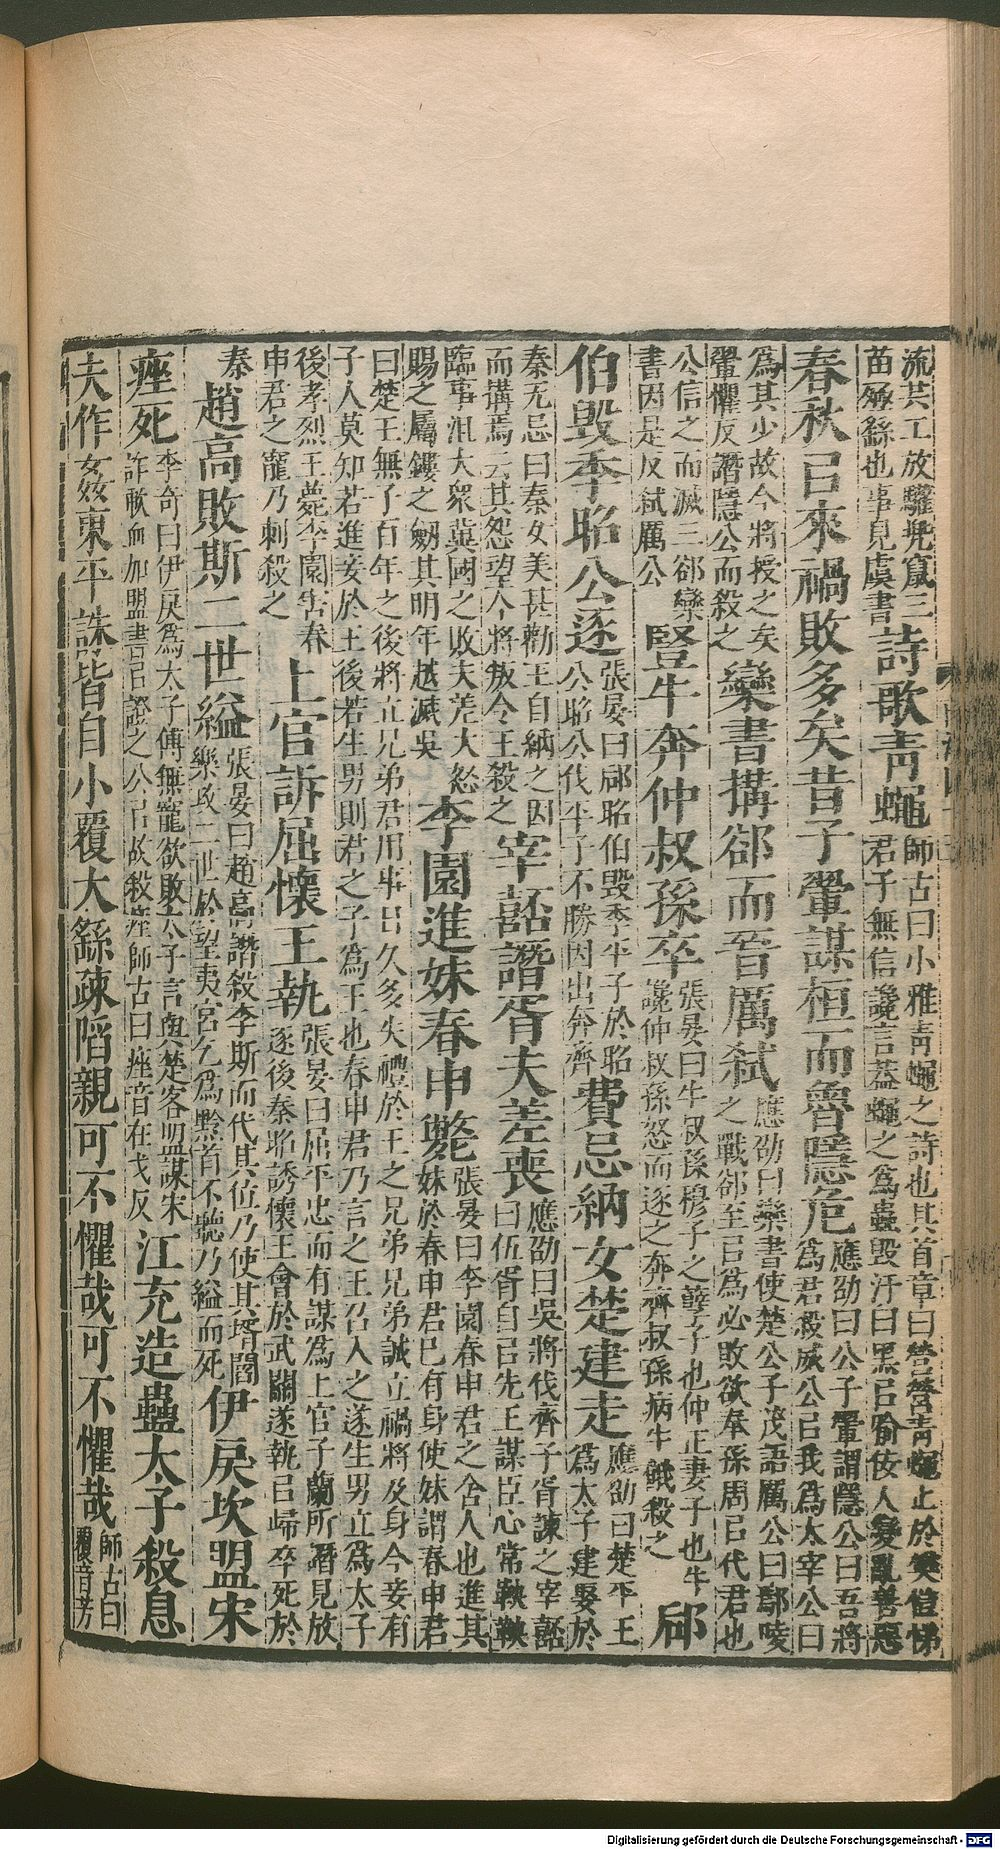 流共工放驩兜竄三
苗殛鯀也事見虞書
詩歌青蠅
師古曰小雅青蠅之詩也其首章曰營營青蠅止於樊愷悌
君子無信讒言葢蠅之為蟲毀汙白黑㠯喻佞人變亂善惡
春秋㠯來禍敗多矣昔子翬謀桓而魯隱危
應劭曰公子翬謂隱公曰吾將
為君殺威公㠯我為太宰公曰
為其少故今將授之矣
翬懼反譖隱公而殺之
欒書搆郤而晉厲弒
應劭曰欒書使楚公子茂語厲公曰鄢陵
之戰郤至㠯為必敗欲奉孫周㠯代君也
公信之而滅三郤欒
書因是反弒厲公
豎牛奔仲叔孫卒
張晏曰牛叔孫穆子之孽子也仲正妻子也牛
讒仲叔孫怒而逐之奔齊叔孫病牛餓殺之
郈
伯毀季昭公逐
張晏曰郈昭伯毀季平子於昭
公昭公伐平子不勝因出奔齊
費忌納女楚建走
應劭曰楚平王
為太子建娶於
秦无忌曰秦女美甚勸王自納之因
而搆焉云其怨望今將叛令王殺之
宰嚭譖胥夫差喪
應劭曰吳將伐齊子胥諫之宰嚭
曰伍胥自㠯先王謀臣心常鞅鞅
臨事沮大衆兾國之敗夫差大怒
賜之屬鏤之劒其明年越滅吳
李園進妹春申斃
張晏曰李園春申君之舍人也進其
妹於春申君已有身使妹謂春申君
曰楚王無子百年之後將立兄弟君用事日久多失禮於王之兄弟兄弟誠立禍將及身今妾有
子人莫知若進妾於王後若生男則君之子為王也春申君乃言之王召入之遂生男立為太子
後孝烈王薨李園害春
申君之寵乃刺殺之
上官訴屈懷王執
張晏曰屈平忠而有謀為上官子蘭所譖見放
逐後秦昭誘懷王會於武關遂執㠯歸卒死於
秦
趙高敗斯二世縊
張晏曰趙高譖殺李斯而代其位乃使其壻閻
樂攻二世於望夷宮乞為黔首不聽乃縊而死
伊戾坎盟宋
痤死
李奇曰伊戾為太子傅無寵欲敗太子言與楚客盟謀宋
詐歃血加盟書㠯證之公㠯故殺痤師古曰痤音在戈反
江充造蠱太子殺息
夫作姦東平誅皆自小覆大繇疎陷親可不懼哉可不懼哉
師古曰
覆音芳
Digitalisierung gefördert durch die Deutsche Forschungsgemeinschaft - DFG